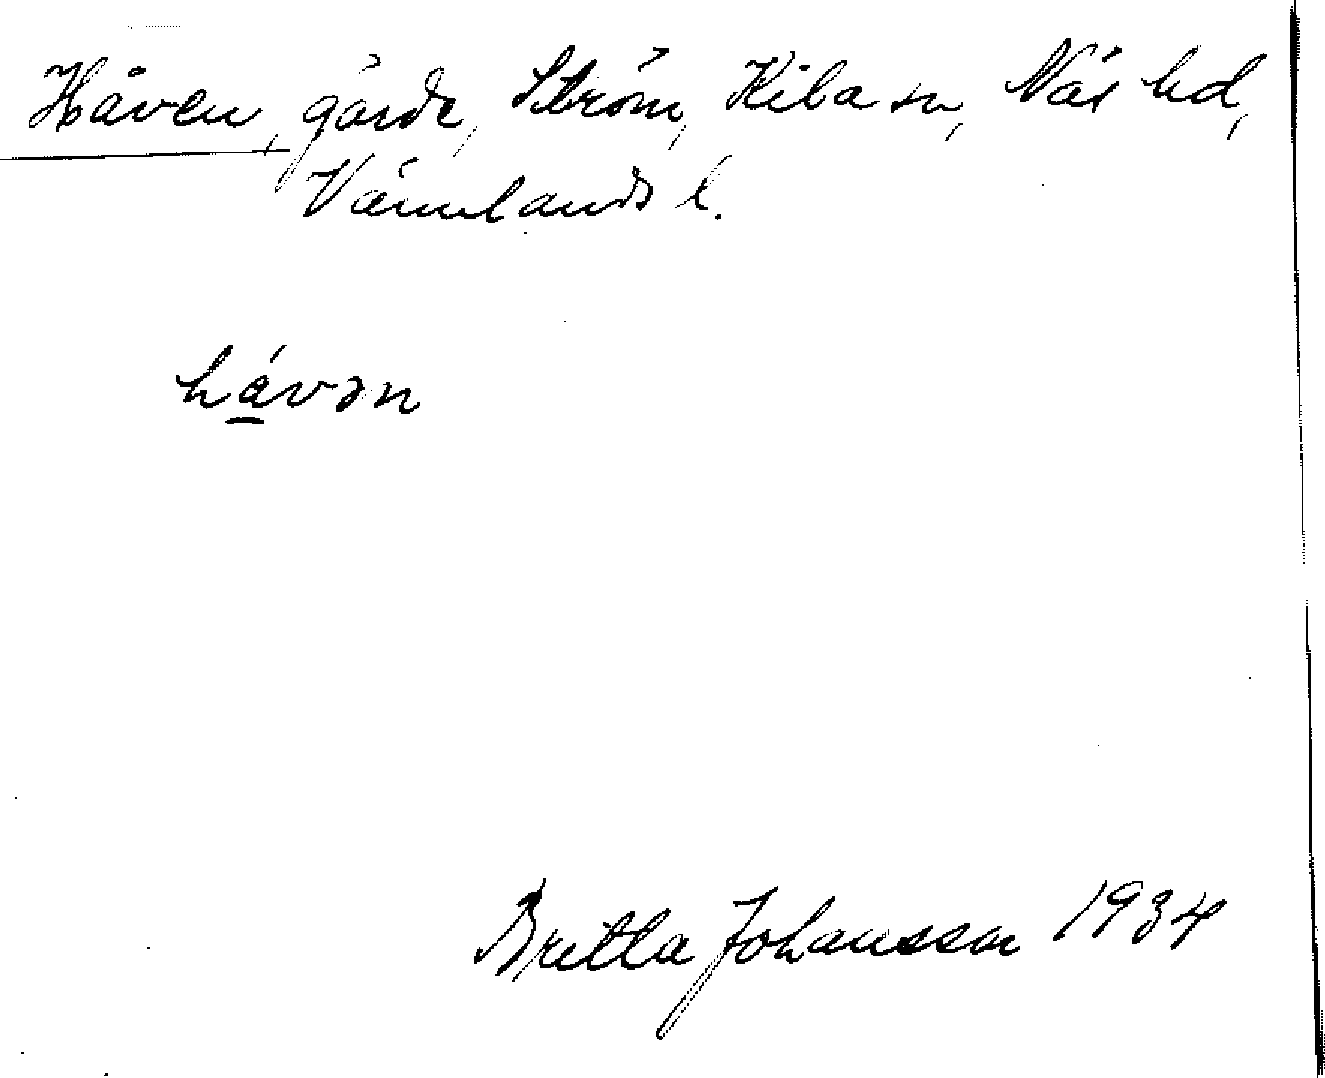 Håven, gärde, Ström, Kila sn, Näs hd,
Värmlands l.
hávən
Britta Johansson 1934